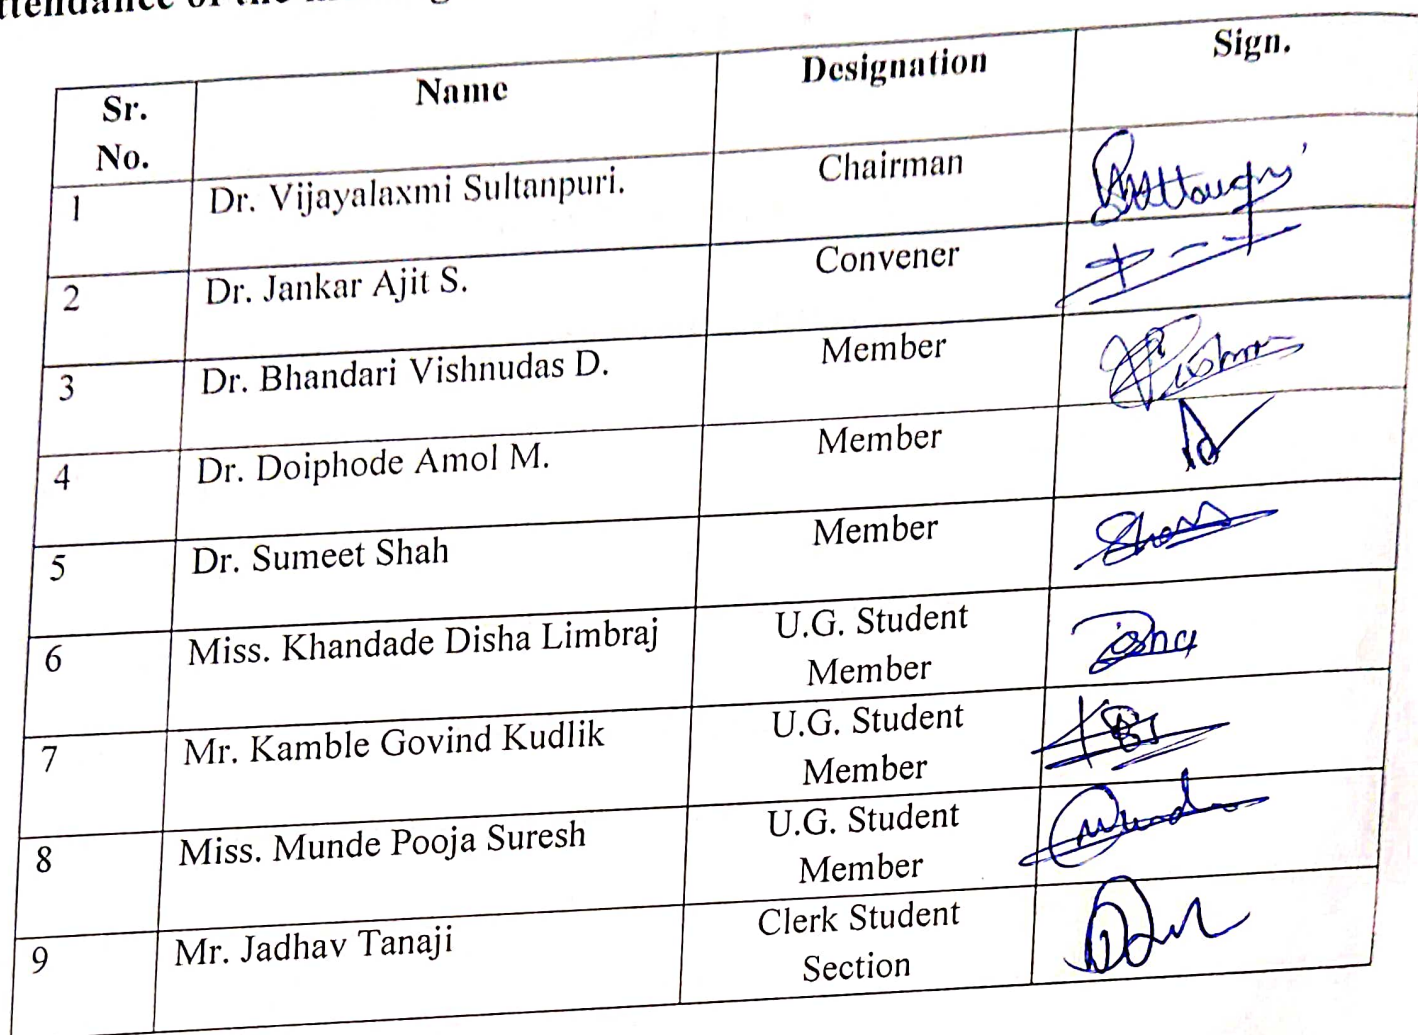 Sr. No. Name Designation Sign.
1 Dr. Vijayalaxmi Sultanpuri. Chairman
2 Dr. Jankar Ajit S. Convener
3 Dr. Bhandari Vishnudas D. Member
4 Dr. Doiphode Amol M. Member
5 Dr. Sumeet Shah Member
6 Miss. Khandade Disha Limbraj U.G. Student Member Disha
7 Mr. Kamble Govind Kudlik U.G. Student Member
8 Miss. Munde Pooja Suresh U.G. Student Member
9 Mr. Jadhav Tanaji Clerk Student Section